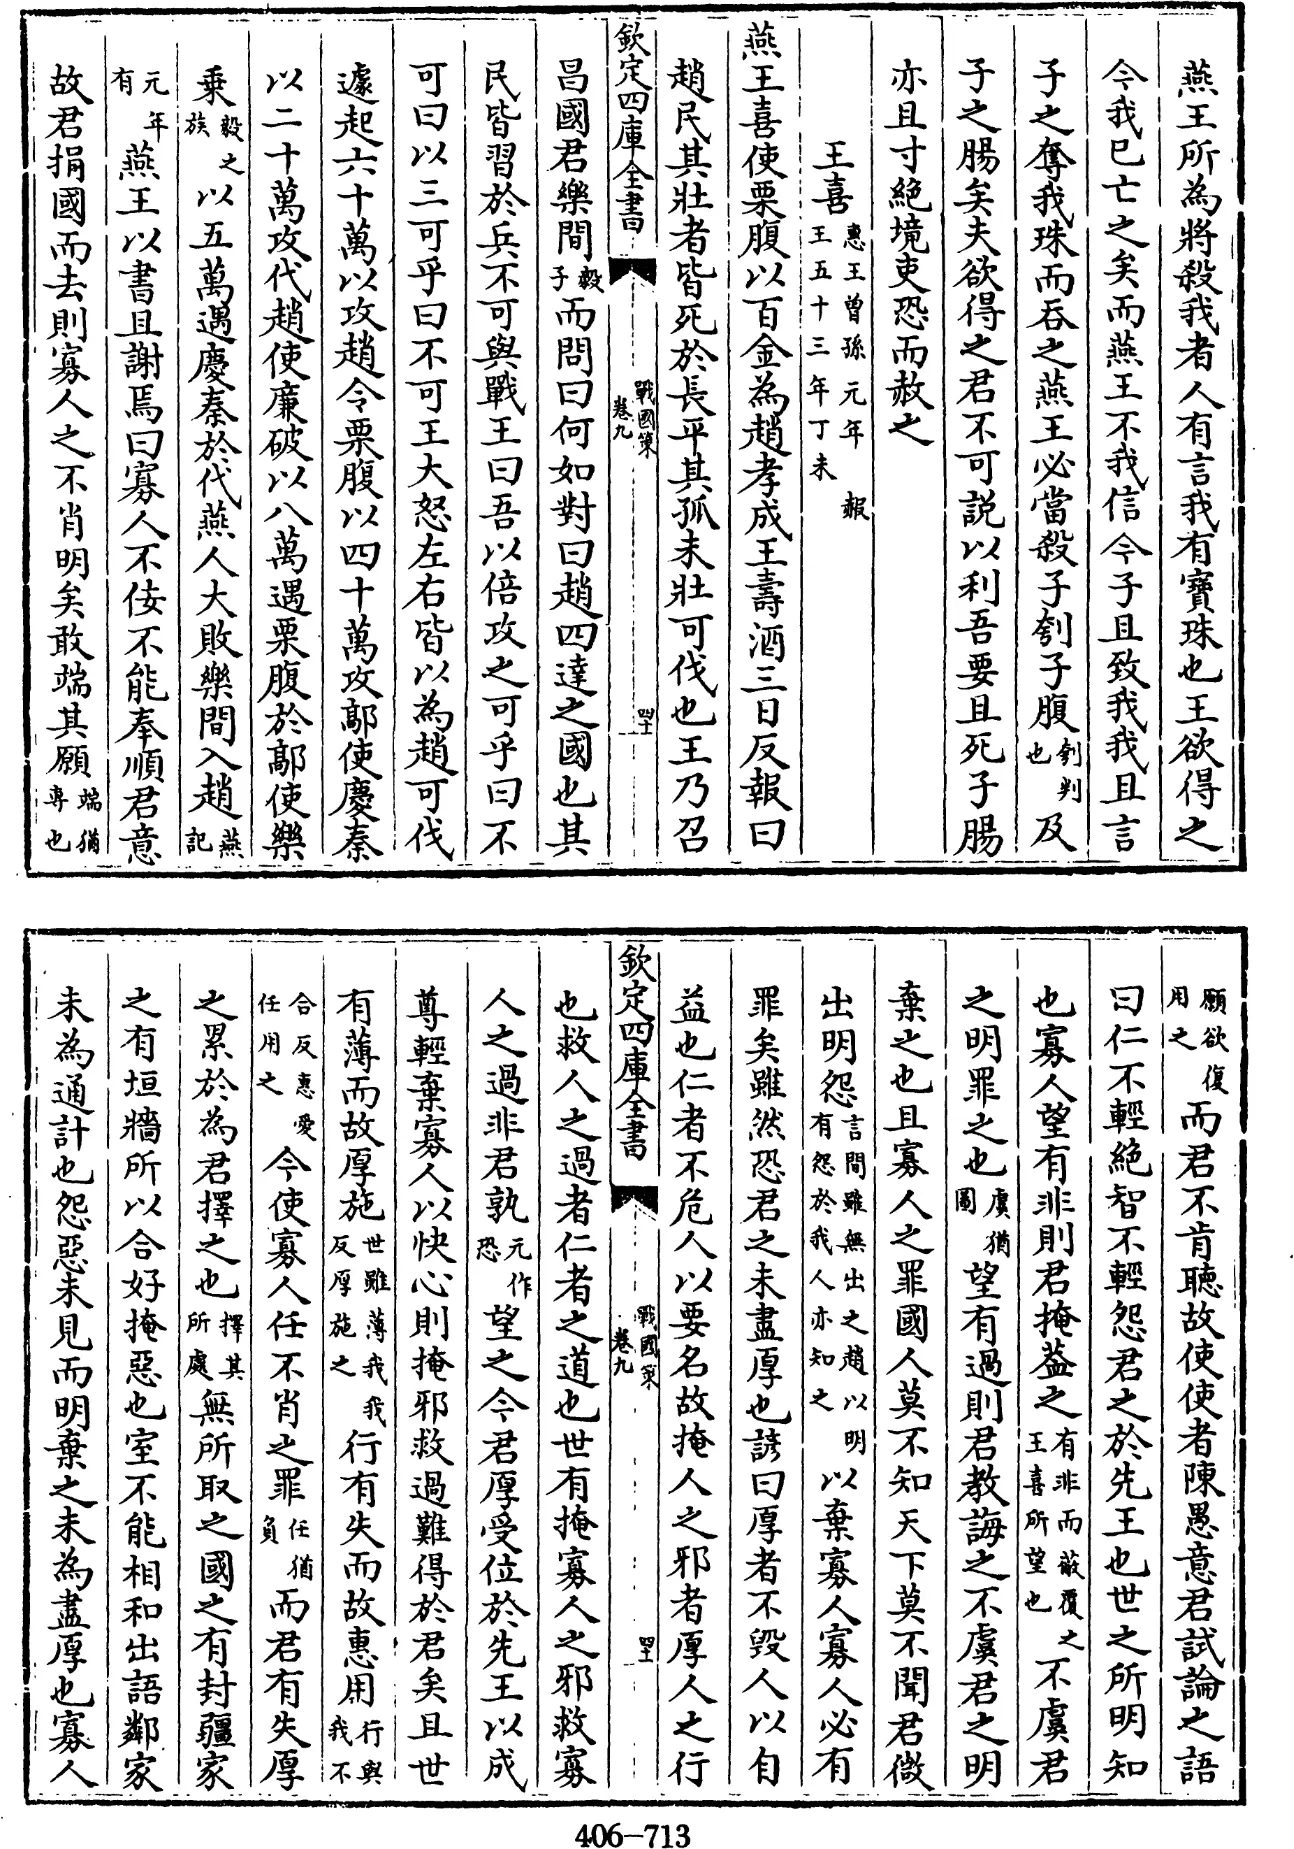 燕王所為將殺我者人有言我有寶珠也王欲得之
今我已亡之矣而燕王不我信今子且致我我且言
子之奪我珠而吞之燕王必當殺子刳子腹刳判也及
子之腸矣夫欲得之君不可説以利吾要且死子腸
亦且寸絶境吏恐而赦之
王喜惠王曾孫元年報王五十三年丁未
燕王喜使栗腹以百金為趙孝成王壽酒三日反報曰
趙民其壯者皆死於長平其孤未壯可伐也王乃召
欽定四庫全書 戰國策 卷九 四十
昌國君樂間毅子而問曰何如對曰趙四達之國也其
民皆習於兵不可與戰王曰吾以倍攻之可乎曰不
可曰以三可乎曰不可王大怒左右皆以為趙可伐
遽起六十萬以攻趙令栗腹以四十萬攻鄗使慶秦
以二十萬攻代趙使廉破以八萬遇栗腹於鄗使樂
乗毅之族以五萬遇慶秦於代燕人大敗樂間入趙燕記
元年有燕王以書且謝焉曰寡人不佞不能奉順君意
故君捐國而去則寡人之不肖明矣敢端其願端猶專也
願欲復用之而君不肯聴故使使者陳愚意君試論之語
曰仁不輕絶智不輕怨君之於先王也世之所明知
也寡人望有非則君掩葢之有非而蔽覆之王喜所望也不虞君
之明罪之也虞猶圖望有過則君教誨之不虞君之明
棄之也且寡人之罪國人莫不知天下莫不聞君微
出明怨言間雖無出之趙以明有怨於我人亦知之以棄寡人寡人必有
罪矣雖然恐君之未盡厚也諺曰厚者不毀人以自
益也仁者不危人以要名故掩人之邪者厚人之行
欽定四庫全書 戰國策 卷九 四十
也救人之過者仁者之道也世有掩寡人之邪救寡
人之過非君孰元作恐望之今君厚受位於先王以成
尊輕棄寡人以快心則掩邪救過難得於君矣且世
有薄而故厚施世雖薄我我反厚施之行有失而故惠用行與我不
合反惠愛任用之今使寡人任不肖之罪任猶負而君有失厚
之累於為君擇之也擇其所處無所取之國之有封疆家
之有垣牆所以合好掩惡也室不能相和出語鄰家
未為通計也怨惡未見而明棄之未為盡厚也寡人
406-713